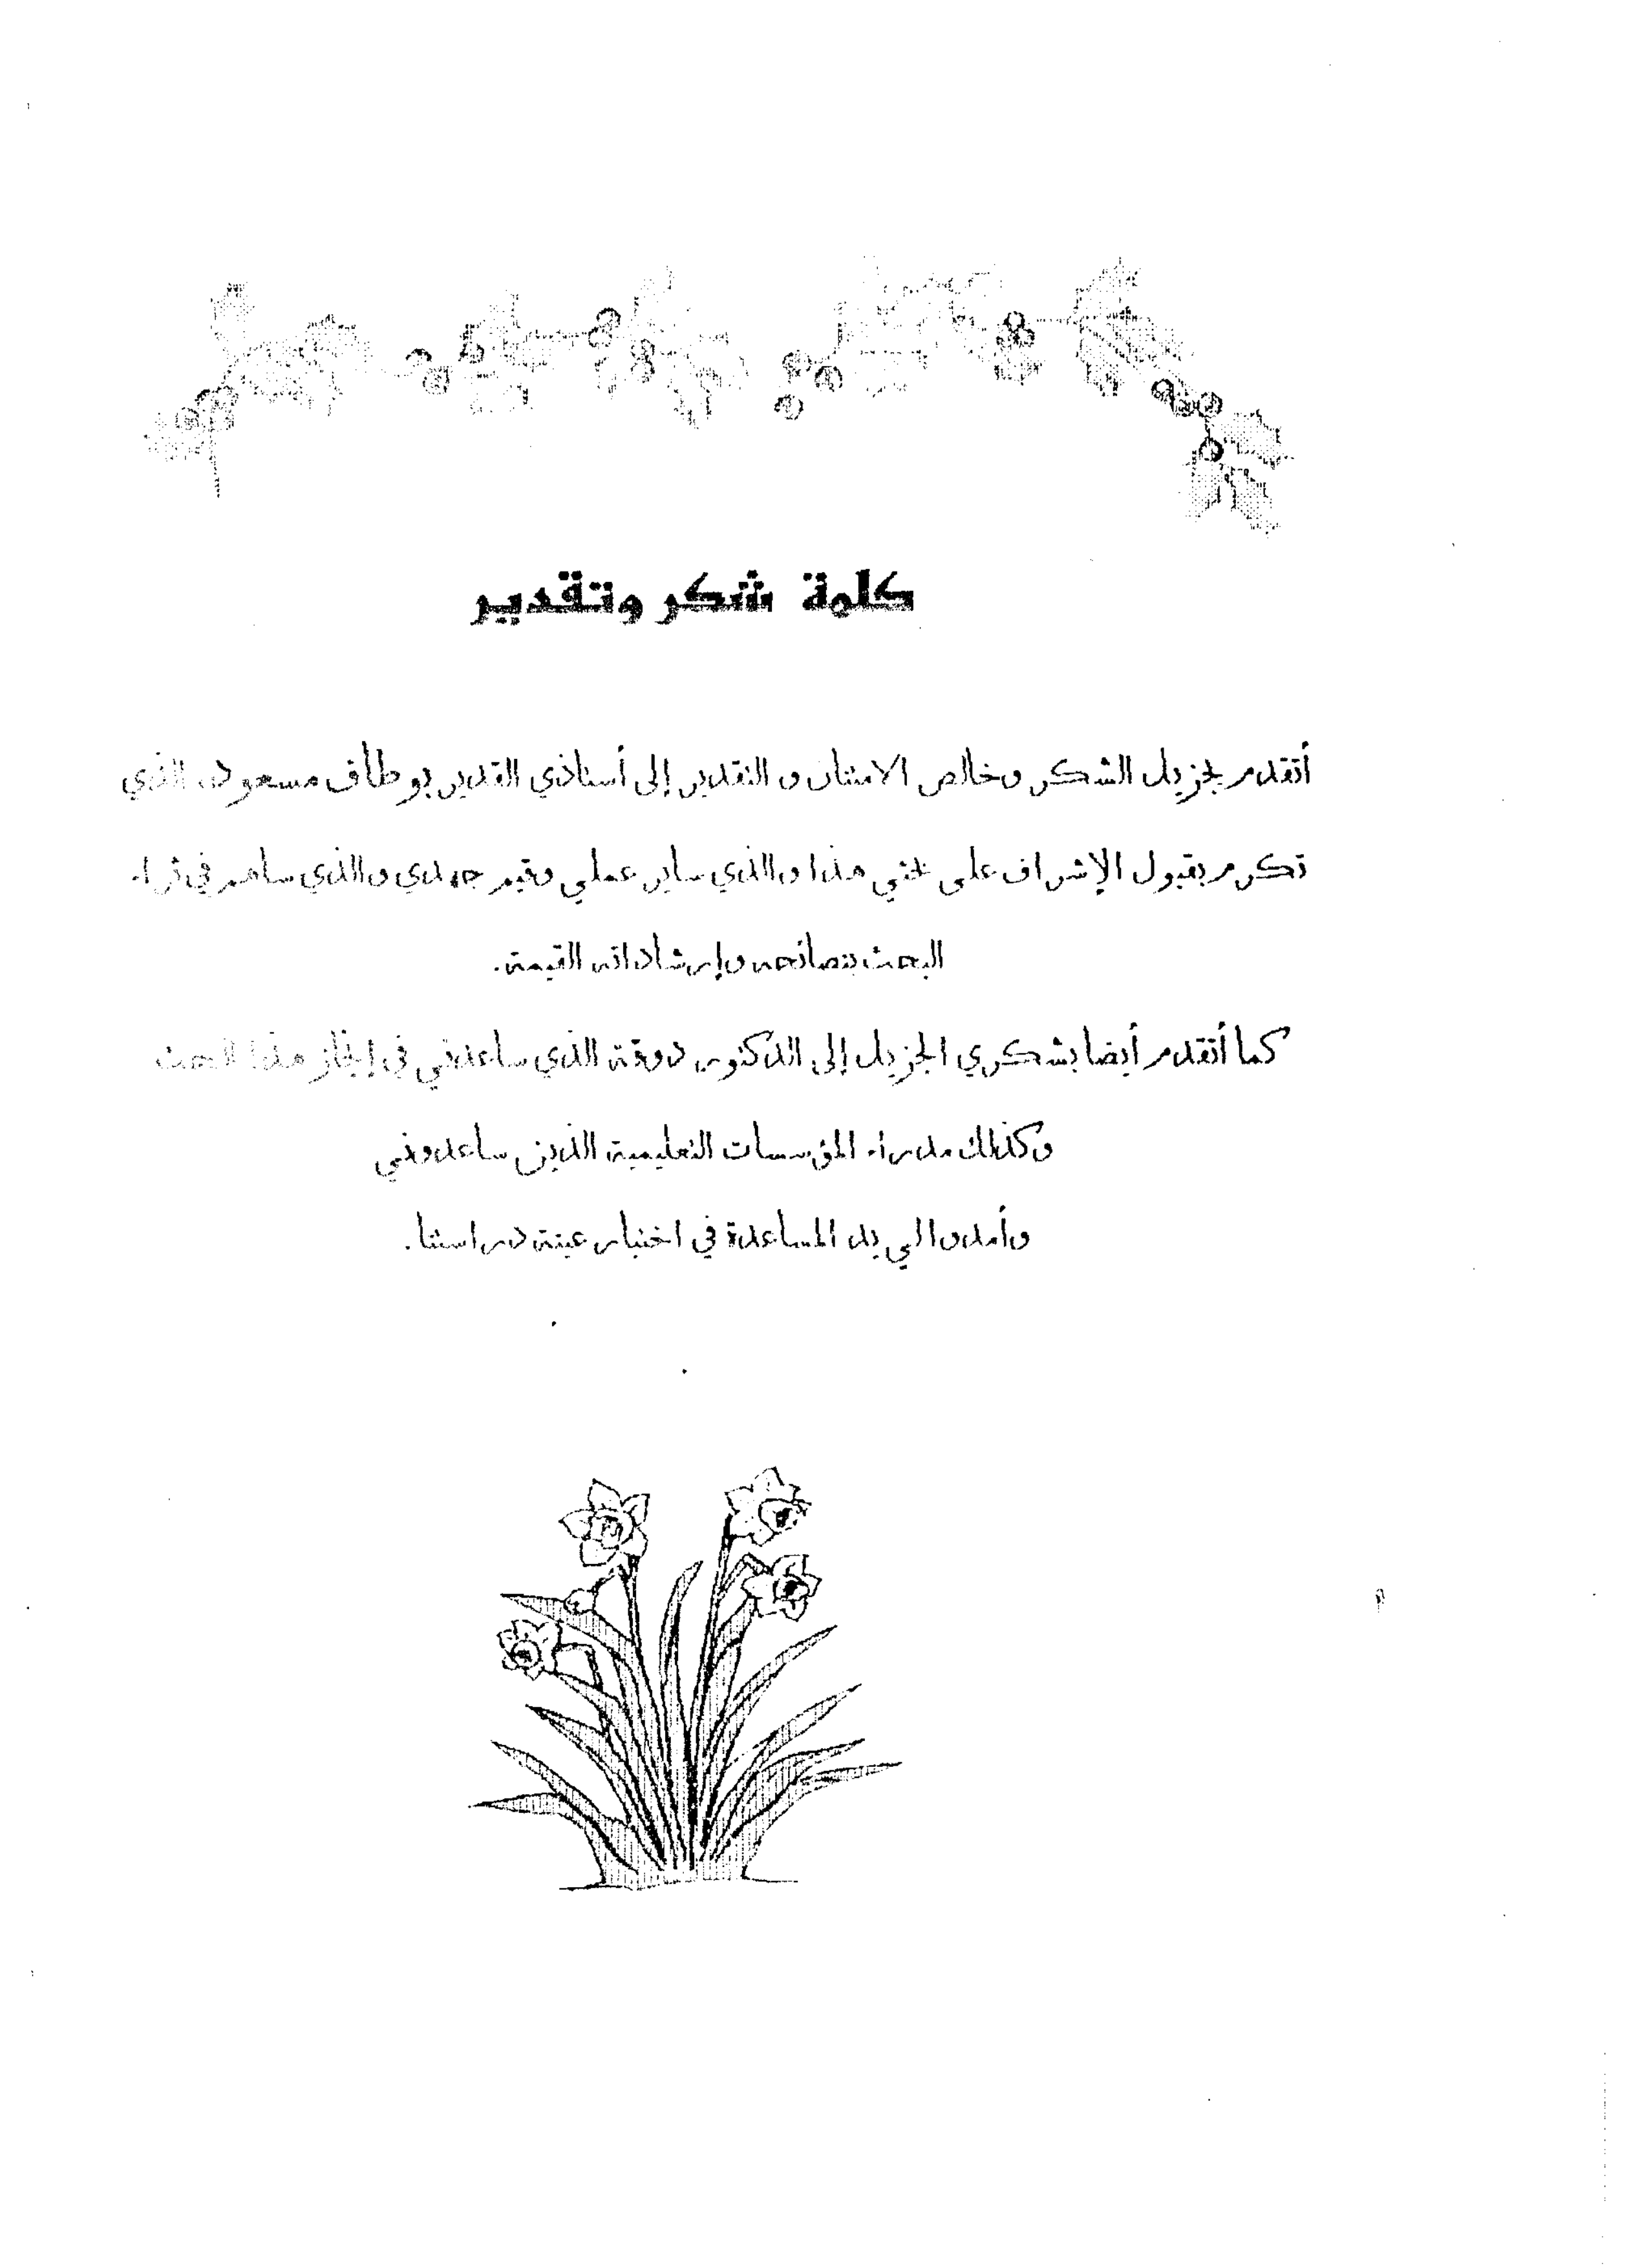 كلمة شكر وتقدير
أتقدم بجزيل الشكر وخالص الامتنان و التقدير إلى أستاذي القدير بوطاف مسعود، الذي
تكرم بقبول الإشراف على بحثي هذا والذي ساير عملي وقيم جهدي والذي ساهم في ثراء
البحث بنصائحه وإرشاداته القيمة.
كما أتقدم أيضا بشكري الجزيل إلى الدكتور دوقة الذي ساعدني في إنجاز هذا البحث
وكذلك مدراء المؤسسات التعليمية الذين ساعدوني
وأمدوا لي يد المساعدة في اختيار عينة دراستنا.